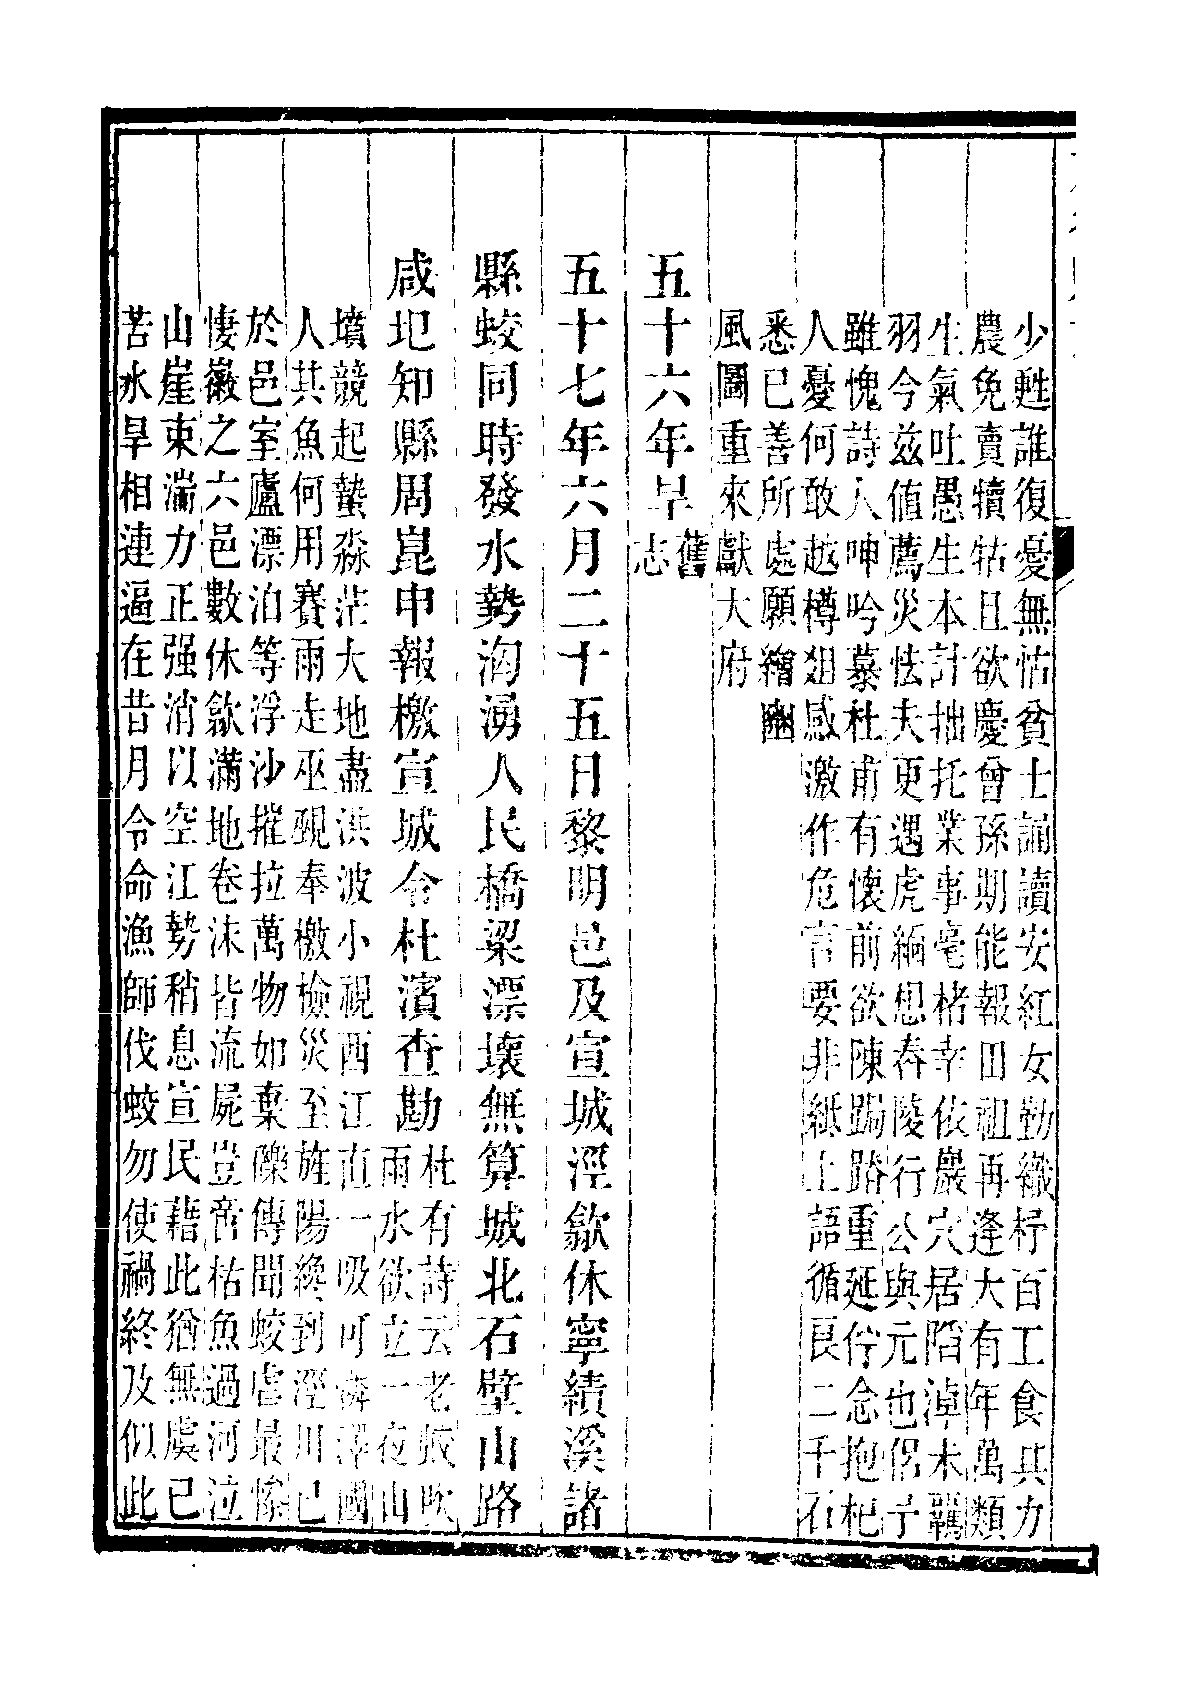 少甦誰復憂無怙貧士誦讀安紅女勤織杼百工食其力
農免賣犢牯且欲慶曾孫期能報田祖再逢大有年萬類
生氣吐愚生本計拙托業事毫楮幸依巖穴居陷淖未羈
羽今茲值薦災怯夫更遇虎緬想舂陵行公與元也侶子
雖愧詩人呻吟慕杜甫有懷前欲陳跼踏重延佇念抱杞
人憂何敢越樽俎感激作危言要非紙上語循良二千石
悉已善所處願繪豳
風圖重來獻大府
五十六年旱舊
志
五十七年六月二十五日黎明邑及宣城涇歙休寧績溪諸
縣蛟同時發水勢洶湧人民橋梁漂壞無算城北石壁山路
咸圯知縣周崑申報檄宣城令杜濱查勘杜有詩云老蛟吹
雨水欲立一夜山
墳競起蟄淼茫大地盡洪波小視西江直一吸可憐澤國
人其魚何用賽雨走巫覡奉檄檢災至旌陽終到涇川已
於邑室廬漂泊等浮沙摧拉萬物如棄礫傳聞蛟虐最慘
悽徽之六邑數休歙滿地卷沫皆流屍豈啻枯魚過河泣
山崖束湍力正强消以空江勢稍息宣民藉此猶無虞已
苦水旱相連逼在昔月令命漁師伐蛟勿使禍終及似此